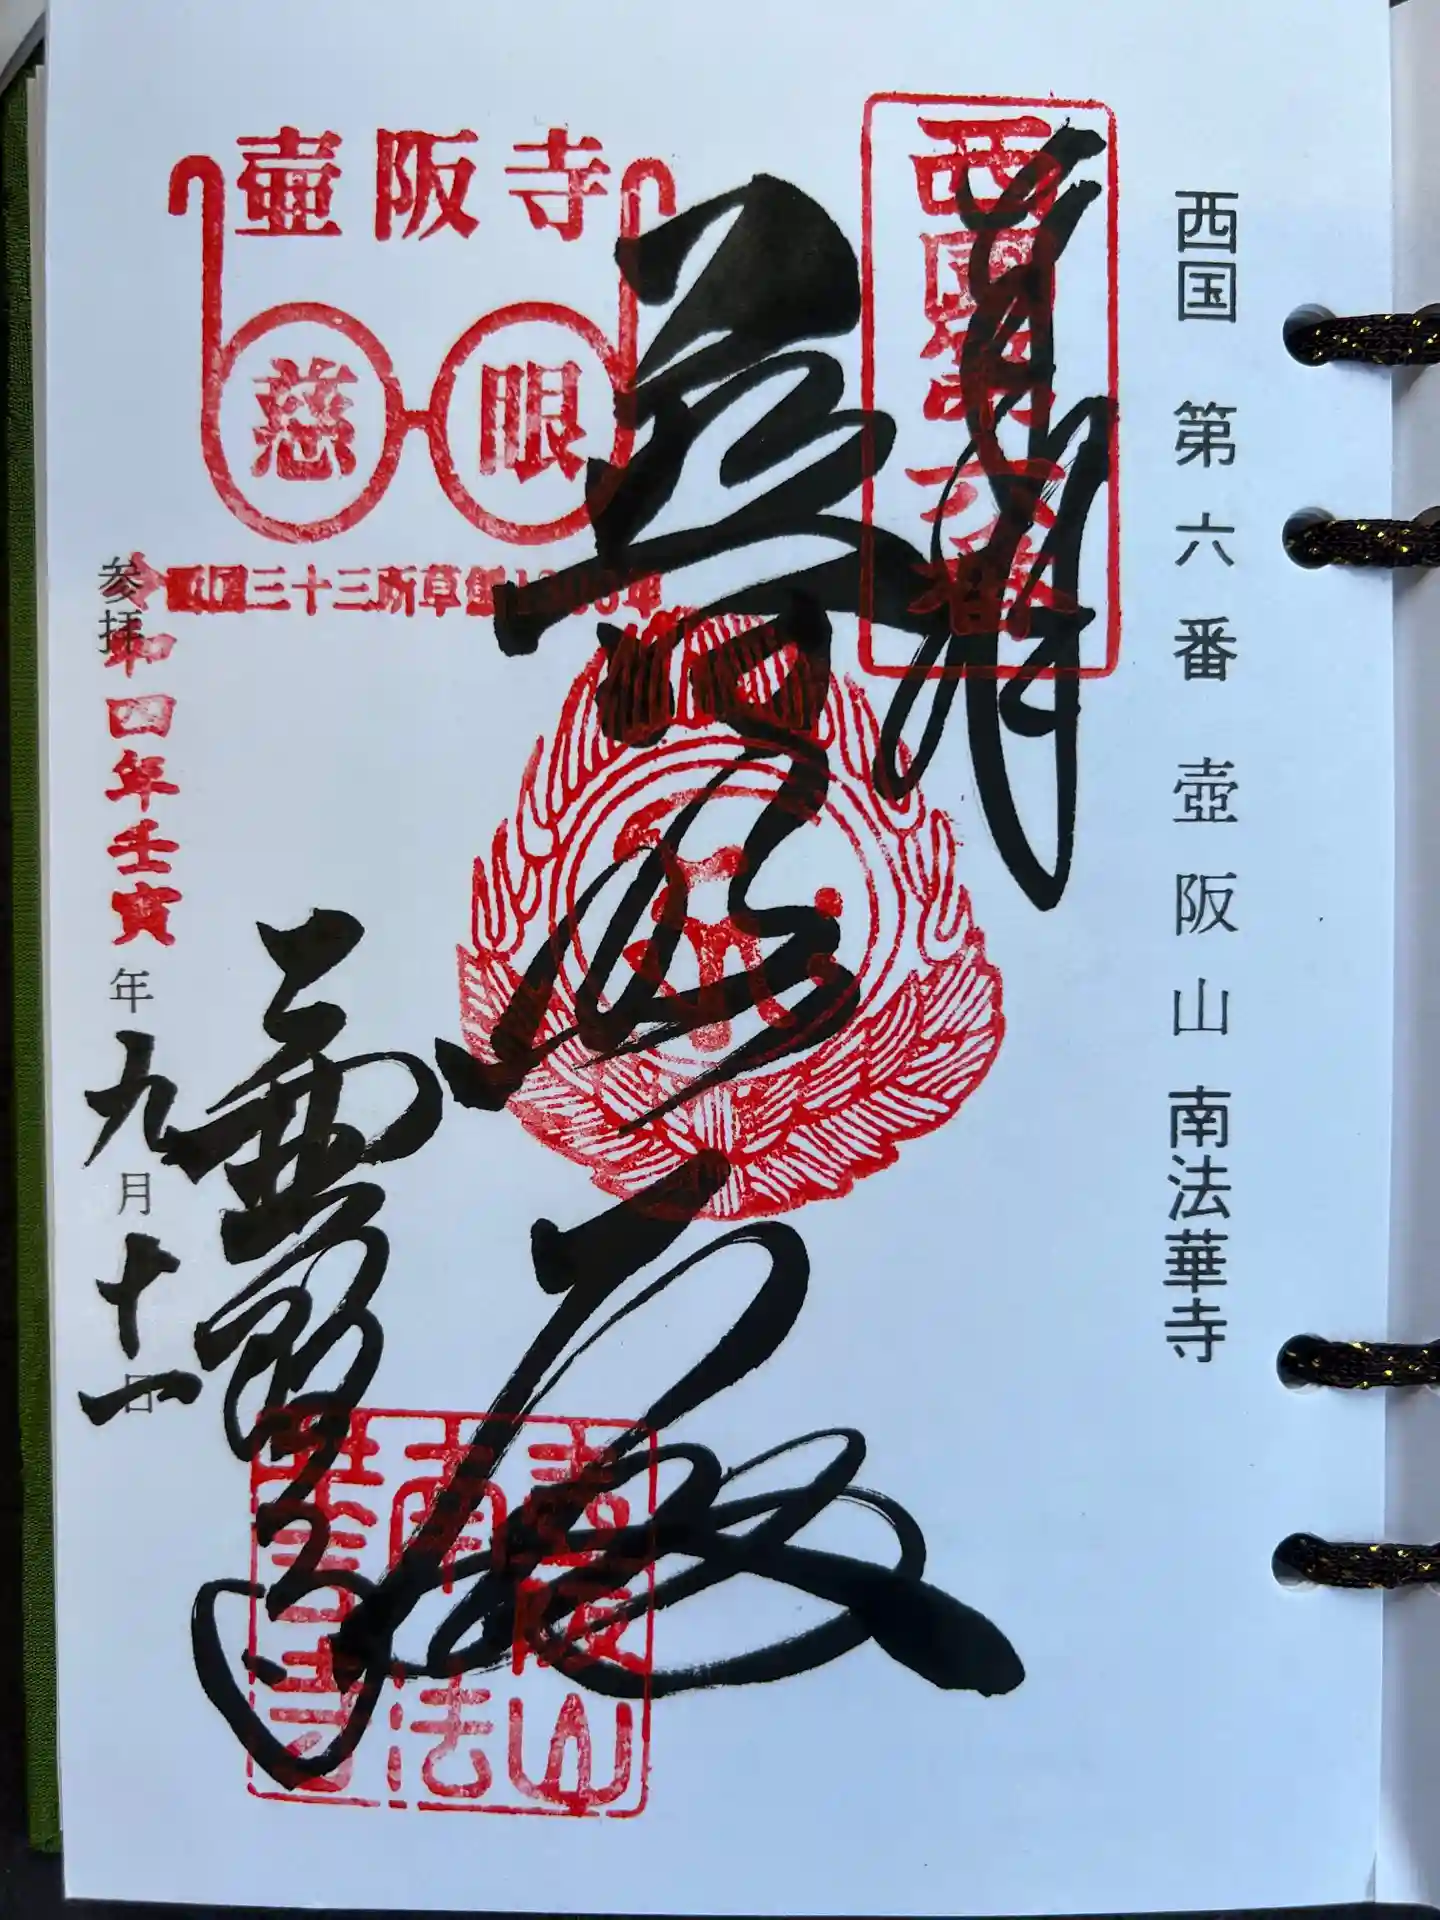 西国 第六番 壺阪山 南法華寺
西國第六番
奉拝
普照殿
壺阪寺
慈眼
西国三十三所草創1300年
壷阪山
南法
華寺
参拝 令和四年壬寅年九月十一日